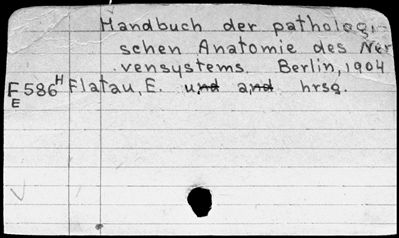 Handbuch der pathologi-
schen Anatomie des Ner
vensystems. Berlin, 1904
F586H Flatau, E. und and hrsg.
E